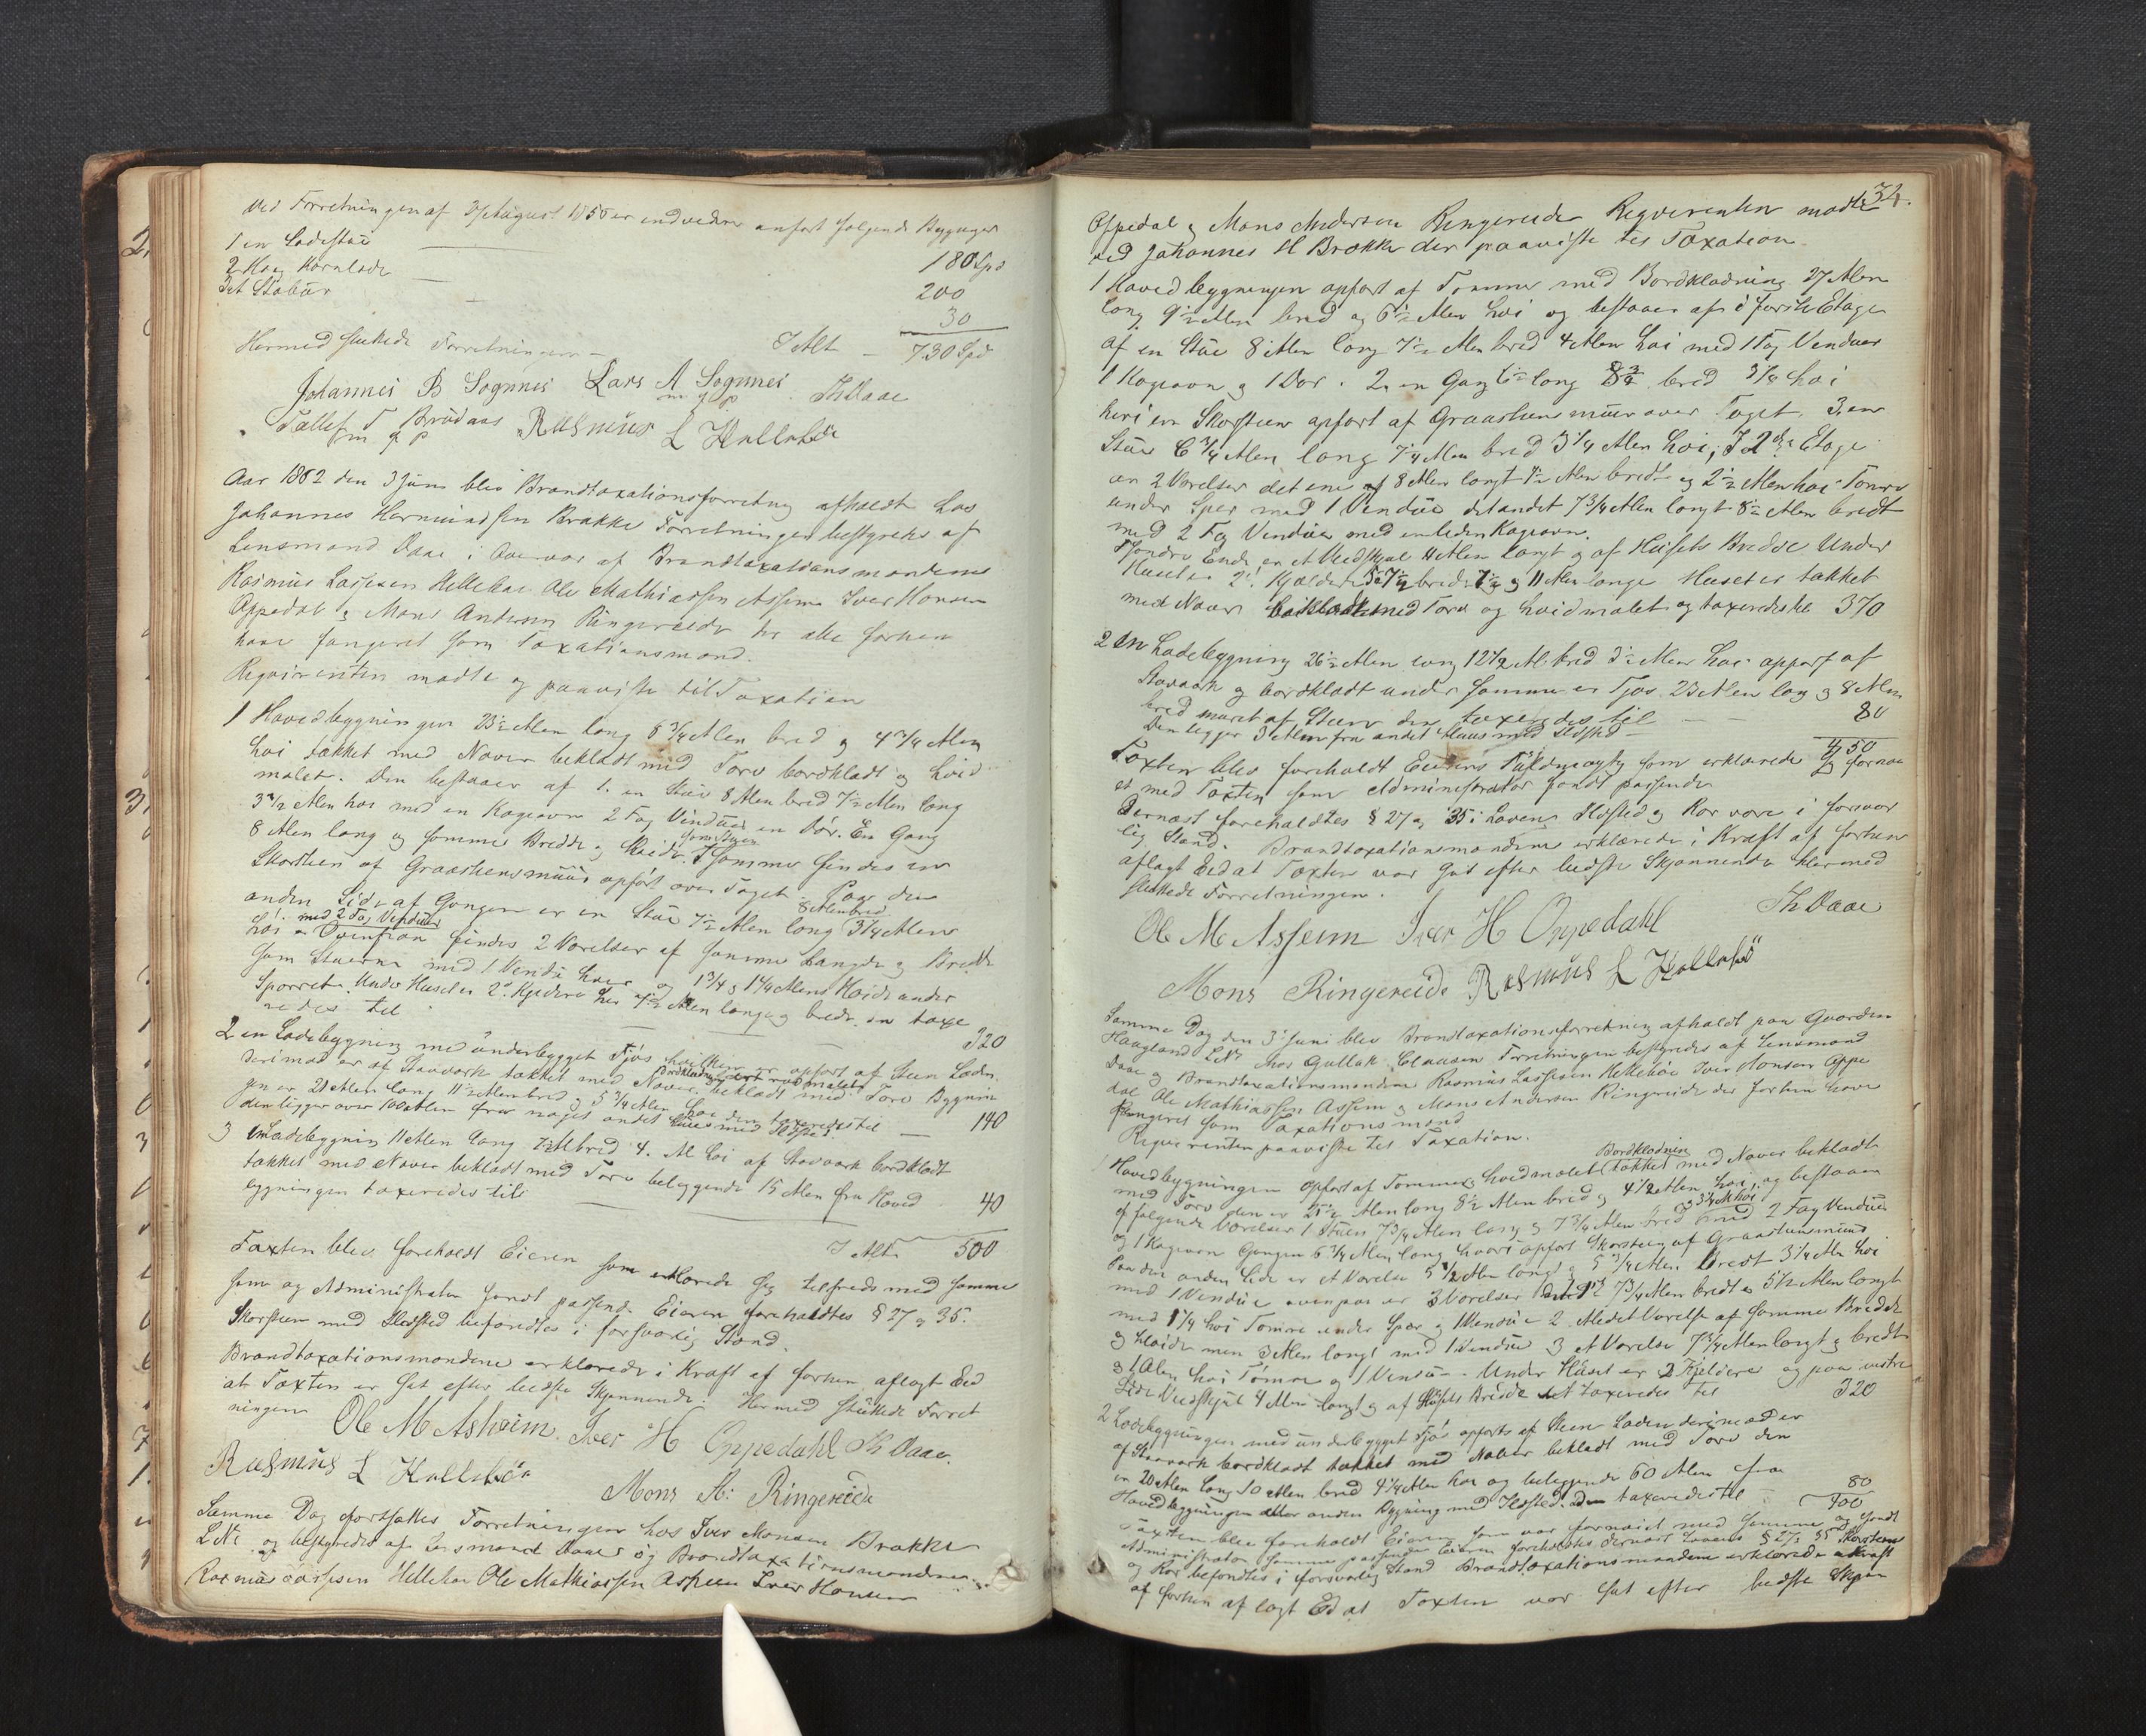 Ved Forretningen af 3 August 1850 er endvidere anført følgende Bygninger
1 en Ladestue 180 Spd
2 Ko og Kornlade 200
3 et Stabur 30
I Alt 730 Spd
Hermed sluttede Forretningen
Johannes B Sognnes Lars A Sognnes Th Daae
m f p
Tollef T Brudaas Rasmus L Hellebø
m f p
Aar 1862 den 3 Juni blev Brandtaxationsforretning afholdt hos
Johannes Hermundsen Brække Forretningen bestyredes af
Lensmand Daae i Overvær af Brandtaxationsmændene
Rasmus Lassesen Hellebøe Ole Mathiassen Assem Iver Hansen
Oppedal og Mons Andersen Ringereide der alle forhen
have fungeret som Taxationsmænd.
Reqvirenten mødte og paaviste til Taxation
1 Hovedbygningen 23½ Alen lang 8¾ Alen bred og 4¾ Alen
høi tækket med Næver beklædt med Torv bordklædt og hvid
malet. Den bestaaer af 1. en Stue 8 Alen bred 7½ Alen lang
3½ Alen høi med en Kogeovn 2 Fag Vinduer en Dør. En Gang
8 Alen lang og samme Bredde og Høide I samme findes en
Skorsteen af Graasteensmuur opført over Taget. Paa den
anden Side af Gangen er en Stue 7½ Alen lang 8 Alen bred 3¼ Alen
høi med 2 Fag Vinduer Ovenpaa findes 2 Værelser af samme Længde og Bredde
som Stuerne med 1 Vindu hver og 1¾ og 1¼ Alens Høide under
Sperret. Under Huset er 2 Kjældere hver 7½ Alen lange og brede, en taxe
redes til 320
2 en Ladebygning med underbygget Fjøs hvilken er opført af Steen Laden
derimod er af Stavværk tækket med Næver beklædt med Torv Bygnin
gen er 21 Alen lang 11½ Alen bred og 5¾ Alen høi den taxeredes til 140
den ligger over 100 Alen fra noget andet Huus med Ildsted.
3 en Ladebygning 11 Alen lang 7½ Al bred 4. Al høi af Stavværk bordklædt
tækket med Næver beklædt med Torv beliggende 15 Alen fra Hoved
bygningen taxeredes til 40
I Alt 500
Taxten blev foreholdt Eieren som erklærede sig tilfreds med samme
som og Administrator fandt passende Eieren foreholdtes § 27 og 35.
Skorsteen med Ildsted befandtes i forsvarlig Stand.
Brandtaxationsmændene erklærede i Kraft af forhen aflagt Eed
at Taxten er sat efter bedste Skjønnende. Hermed sluttede Forret
ningen
Ole M Asheim Iver H Oppedahl Th Daae.
Rasmus L Hellebø
Mons A: Ringereide
Samme Dag fortsattes Forretningen hos Iver Monsen Brække
LNr og bestyredes af Lensmand Daae og Brandtaxationsmændene
Rasmus Lassesen Hellebøe Ole Mathiassen Assem Iver Hansen
34.
Oppedal og Mons Andersen Ringereide Reqvirenten mødte
ved Johannes H Brække der paaviste til Taxation
1 Hovedbygningen opført af Tømmer med Bordklædning 27 Alen
lang 9½ Alen bred og 6½ Alen høi og bestaaer af i første Etage
af en Stue 8 Alen lang 7½ Alen bred 4 Alen høi med 1 Fag Vinduer
1 Kogeovn og 1 Dør. 2, en Gang lang bred høi
heri en Skorsteen opført af Graasteensmuur over Taget. 3, en
Stue 6¾ Alen lang 7¼ Alen bred 3¼ Alen høi; I 2den Etage
er 2 Værelser det ene af 8 Alen langt 7½ Alen bredt og 2½ Alen høi Tømre
under Sper med 1 Vindue det andet 7¾ Alen langt 8½ Alen bredt
med 2 Fag Vinduer med en liden Kogeovn.
Søndre Ende er et Vedskjul 4 Alen langt og af Husets Bredde Under
Huset er 2 Kjældere 7½ brede 7½ og 11 Alen lange Huset er tækket
med Næver beklædt med Torv og hvidmalet og taxeredes til 370
2 En Ladebygning 26½ Alen lang 12½ Al bred 3½ Alen høi opført af
Stavværk og bordklædt under samme er Fjøs 23 Alen lang og 8 Alen
bred muret af Steen den taxeredes til 80
Den ligger 3 Alen fra andet Huus med Ildsted
450
Taxten blev foreholdt Eierens Fuldmægtig som erklærede sig fornøi
et med Taxten som Administrator fandt passende
Dernæst foreholdtes § 27 og 35 i Loven Ildsted og Rør vare i forsvar
lig Stand. Brandtaxationsmændene erklærede i Kraft af forhen
aflagt Eed at Taxten var sat efter bedste Skjønnende Hermed
sluttede Forretningen.
Th Daae
Ole M Assem Iver H Oppedahl
Mons Ringereide Rasmus L Hellebø
Samme Dag den 3 Juni blev Brandtaxationsforretning afholdt paa Gaarden
Haugland LNr hos Gullak Claussen Forretningen bestyredes af Lensmand
Daae og Brandtaxationsmændene Rasmus Lassesen Hellebøe Iver Hansen Oppe
dal Ole Mathiassen Assem og Mons Andersen Ringereide der forhen have
fungeret som Taxationsmænd
Reqvirenten paaviste til Taxation.
1 Hovedbygningen opført af Tømmer hvidmalet Bordklædnin tækket med Næver beklædt
med Torv den er 21½ Alen lang 8½ Alen bred og 4½ Alen høi, og bestaaer
af følgende Værelser 1 Stuen 7¾ Alen lang og 7¾ Alen bred og 3¼ Al høi med 2 Fag Vinduer
og 1 Kogeovn Gangen 6¾ Alen lang hvori opført Skorsteen af Graasteensmuur
Paa den anden Side er et Værelse 5½ Alen langt og 5¾ Alen bredt 3¼ Al høi
med 1 Vindue ovenpaa er 3 Værelser 7¾ Alen bredt og 5½ Alen langt
med 1¼ høi Tømre under Sper og 1 Vindue 2. Medet Værelse af samme Bredde
og Høide men 3 Alen langt med 1 Vindue 3 et Værelse 7¾ Alen langt og bredt
og 1 Alen høi Tømre og 1 Vindue. Under Huset er 2 Kjeldere og paa vestre
Side Vedskjul 4 Alen langt og af Husets Bredde taxeredes til 320
2 Ladebygningen med underbygget Fjøs opført af Steen Laden derimod er
af Stavværk bordklædt tækket med Næver beklædt med Torv den
er 20 Alen lang 10 Alen bred 4¼ Alen høi og beliggende 60 Alen fra
Hovedbygningen eller anden Bygning med Ildsted. Den taxeredes til 80
400
Taxten blev foreholdt Eieren som var fornøiet med samme og fandt
Administrator samme passende Eieren foreholdtes dernæst Lovens § 27 og 35 Skorsteen
og Rør befandtes i forsvarlig Stand Brandtaxationsmændene erklærede i Kraft
af forhen aflagt Ed at Taxten var sat efter bedste Skjøn